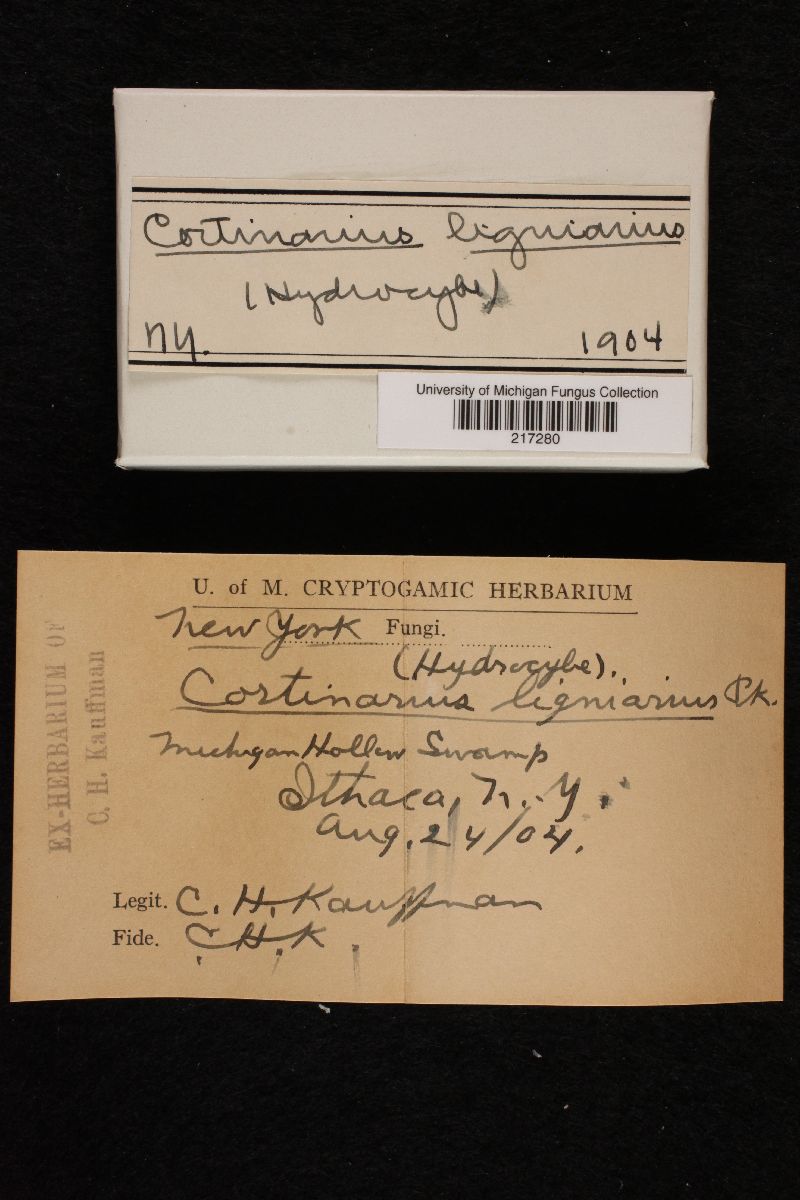 Cortinarius ligniarius
(Hydrocybe)
NY.
1904
University of Michigan Fungus Collection
217280
U. of M. CRYPTOGAMIC HERBARIUM
New York Fungi.
(Hydrocybe).
Cortinarius ligniarius Pk.
Michigan Hollow Swamp
Ithaca, N.Y.
Aug. 24/04.
Legit. C. H. Kauffman
Fide. C.H.K.
EX-HERBARIUM OF
C. H. Kauffman